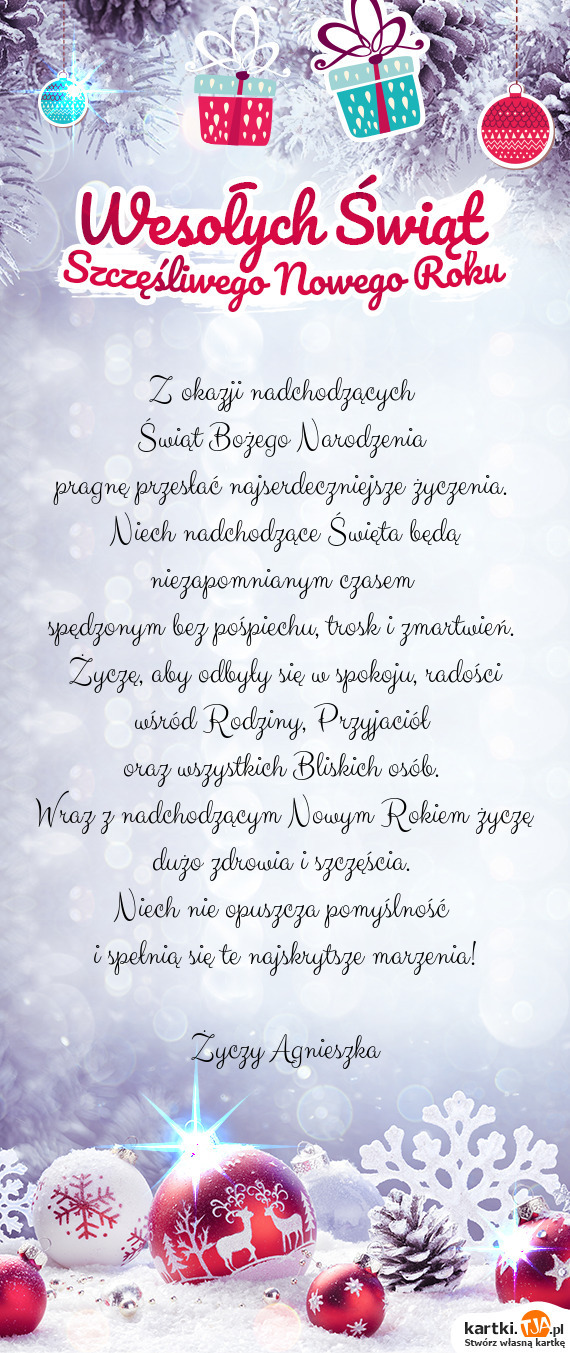 Wesołych Świąt
Szczęśliwego Nowego Roku
Z okazji nadchodzących
Świąt Bożego Narodzenia
pragnę przesłać najserdeczniejsze życzenia.
Niech nadchodzące Święta będą
niezapomnianym czasem
spędzonym bez pośpiechu, trosk i zmartwień.
Życzę, aby odbyły się w spokoju, radości
wśród Rodziny, Przyjaciół
oraz wszystkich Bliskich osób.
Wraz z nadchodzącym Nowym Rokiem życzę
dużo zdrowia i szczęścia.
Niech nie opuszcza pomyślność
i spełnią się te najskrytsze marzenia!
Życzy Agnieszka
kartki.TJA.pl
Stwórz własną kartkę